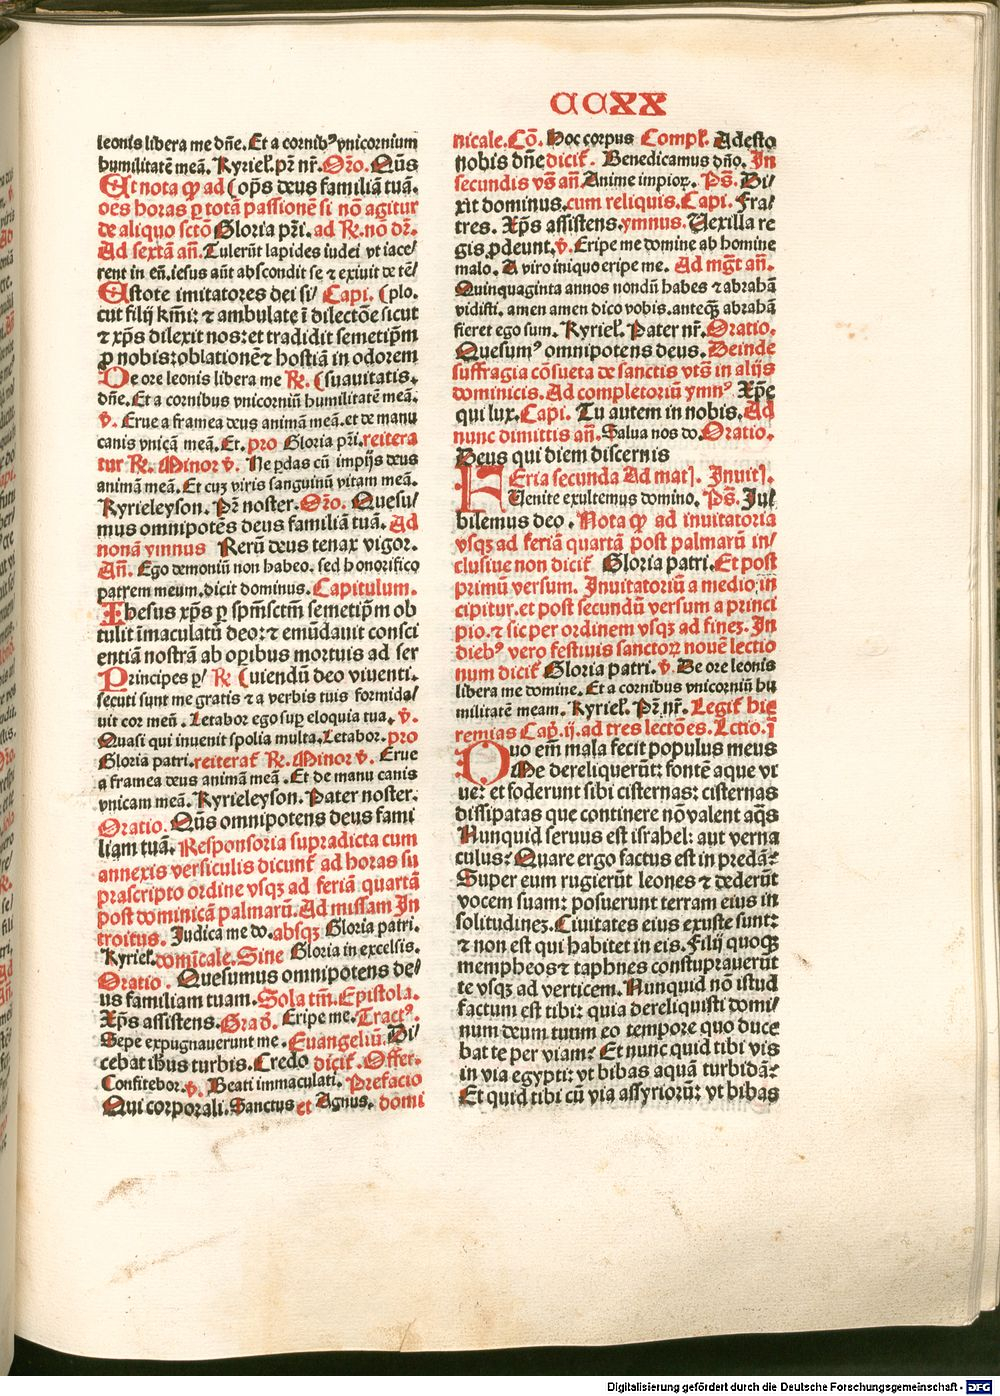 CCXX
leonis libera me dn̄e. Et a cornibꝰ vnicornium
humilitatē meā. Kyriel'. pr̄ nr̄. Or̄o. Qūs
Et nota ꝙ ad (op̄s deus familiā tuā.
oēs horas ꝑ totā passionē si nō agitur
de aliquo sctō Gloria pr̄i. ad R̄. nō dr̄.
Ad sextā an̄. Tulerūt lapides iudei vt iace/
rent in eū. iesus aūt abscondit se ⁊ exiuit de tē/
Estote imitatores dei si/ Capi. (plo.
cut filij km̄i: ⁊ ambulate ī dilectōe sicut
⁊ xp̄s dilexit nos: et tradidit semetip̄m
ꝓ nobis: oblationē ⁊ hostiā in odorem
De ore leonis libera me R̄. (suauitatis.
dn̄e. Et a cornibus vnicorniū humilitatē meā.
v̄. Erue a framea deus animā meā. et de manu
canis vnicā meā. Et. pro Gloria pr̄i. reitera
tur R̄. Minor v̄. Ne ꝑdas cū impijs deus
animā meā. Et cuꝫ viris sanguinū vitam meā.
Kyrieleyson. Pr̄ noster. Or̄o. Quesu/
mus omnipotēs deus familiā tuā. Ad
nonā ymnus Rerū deus tenax vigor.
An̄. Ego demoniū non habeo. sed honorifico
patrem meum. dicit dominus. Capitulum.
Ihesus xp̄s ꝑ sp̄m sctm̄ semetip̄m ob
tulit īmaculatū deo: ⁊ emūdauit consci
entiā nostrā ab oꝑibus mortuis ad ser
Principes ꝑ/ R̄ (uiendū deo viuenti.
secuti sunt me gratis ⁊ a verbis tuis formida/
uit cor meū. Letabor ego suꝑ eloquia tua. v̄.
Quasi qui inuenit spolia multa. Letabor. pro
Gloria patri. reiterat̄ R̄. Minor v̄. Erue
a framea deus animā meā. Et de manu canis
vnicam meā. Kyrieleyson. Pater noster.
Oratio. Qūs omnipotens deus fami
liam tuā. Responsoria supradicta cum
annexis versiculis dicunt̄ ad horas su
prascripto ordine vsqꝫ ad feriā quartā
post dominicā palmarū. Ad missam In
troitus. Judica me do. absqꝫ Gloria patri.
Kyriel'. domīcale. Sine Gloria in excelsis.
Oratio. Quesumus omnipotens de/
us familiam tuam. Sola tm̄. Epistola.
Xp̄s assistens. Gradꝰ. Eripe me. Tractꝰ.
Sepe expugnauerunt me. Euangeliū. Di/
cebat ih̄us turbis. Credo dicit̄. Offer.
Confitebor. v̄. Beati immaculati. Prefacio
Qui corporali. Sanctus et Agnus. domi
nicale. Cō. Hoc corpus Compl'. Adesto
nobis dn̄e dicit̄. Benedicamus dn̄o. In
secundis vs̄ an̄. Anime impioꝝ. Ps̄. Di/
xit dominus. cum reliquis. Capi. Fra/
tres. Xp̄s assistens. ymnus. Vexilla re
gis ꝓdeunt. v̄. Eripe me domine ab homine
malo. A viro iniquo eripe me. Ad mḡt an̄.
Quinquaginta annos nondū habes ⁊ abrahā
vidisti. amen amen dico vobis. anteqꝫ abrahā
fieret ego sum. Kyriel'. Pater nr̄. Oratio.
Quesumꝰ omnipotens deus. Deinde
suffragia cōsueta de sanctis vts̄ in alijs
dominicis. Ad completoriū ymnꝰ Xp̄e
qui lux. Capi. Tu autem in nobis. Ad
nunc dimittis an̄. Salua nos do. Oratio.
Deus qui diem discernis
Feria secunda Ad mat̄. Inuit̄.
Venite exultemus domino. Ps̄. Ju/
bilemus deo. Nota ꝙ ad inuitatoria
vsqꝫ ad feriā quartā post palmarū in/
clusiue non dicit̄ Gloria patri. Et post
primū versum. Inuitatoriū a medio in
cipitur. et post secundū versum a princi
pio. ⁊ sic per ordinem vsqꝫ ad fineꝫ. In
diebꝰ vero festiuis sanctoꝝ nouē lectio
num dicit̄ Gloria patri. v̄. De ore leonis
libera me domine. Et a cornibus vnicorniū hu
militatē meam. Kyriel'. Pr̄ nr̄. Legit̄ hie
remias Cap̄. ij. ad tres lectōes. Lctio. ī
Duo em̄ mala fecit populus meus
Me dereliquerūt: fontē aque vi
ue: et foderunt sibi cisternas: cisternas
dissipatas que continere nō valent aq̄s
Nunquid seruus est israhel: aut verna
culus? Quare ergo factus est in predā?
Super eum rugierūt leones ⁊ dederūt
vocem suam: posuerunt terram eius in
solitudineꝫ. Ciuitates eius exuste sunt:
⁊ non est qui habitet in eis. Filij quoqꝫ
mempheos ⁊ taphnes constuprauerūt
te vsqꝫ ad verticem. Nunquid nō istud
factum est tibi: quia dereliquisti domi/
num deum tuum eo tempore quo duce
bat te per viam? Et nunc quid tibi vis
in via egypti: vt bibas aquā turbidā?
Et quid tibi cū via assyriorū: vt bibas
Digitalisierung gefördert durch die Deutsche Forschungsgemeinschaft - DFG